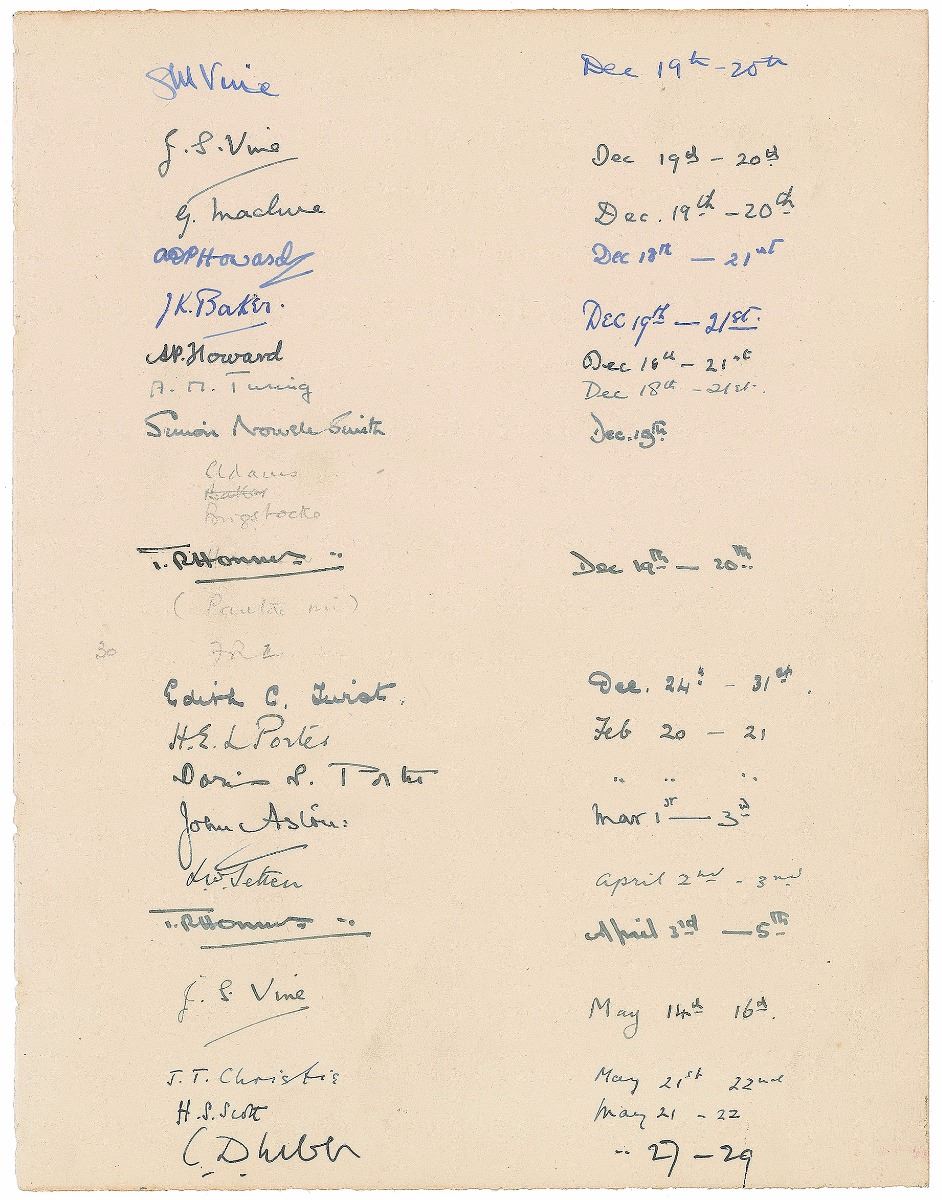 S M Vine Dec 19th - 20th
J. S. Vine Dec 19th - 20th
G. Dec. 19th - 20th
Howard Dec 18th - 21st
J K. Baker. Dec 19th - 21st.
A.P. Howard Dec 16th - 21st
A. M. Turing Dec 18th - 21st.
Simon Nowell Smith Dec. 19th
Adams
Baker
Brigstocke
Dec 19th - 20th
(
30
Edith C. Dec. 24th - 31st.
H.E.L Porter Feb 20 - 21
Doris Porter " " "
John Aston: Mar 1st - 3rd
April 2nd - 3rd
April 3rd - 5th
J. S. Vine May 14th 16th.
J. T. Christie May 21st 22nd
H. S. Scott May 21 - 22
" 27 - 29